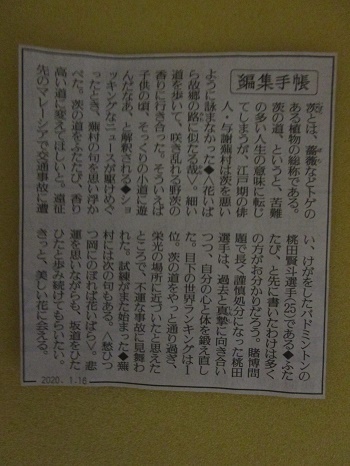 編集手帳
茨とは、薔薇などトゲの
ある植物の総称である。
茨の道、というと、苦難
の多い人生の意味に転じ
てしまうが、江戸期の俳
人・与謝蕪村は茨を悪い
ように詠まなかった◆〈花いば
ら故郷の路に似たる哉〉。細い
道を歩いて、咲き乱れる野茨の
香りに行き合った。そういえば
子供の頃、そっくりの小道に遊
んだなあ、と解釈される◆ショ
ッキングなニュースが駆けめぐ
ったとき、蕪村の句を思い浮か
べた。茨の道をふたたび、香り
高い道に変えてほしいと。遠征
先のマレーシアで交通事故に遭
い、けがをしたバドミントンの
桃田賢斗選手(25)である◆ふた
たび、と先に書いたわけは多く
の方がお分かりだろう。賭博問
題で長く謹慎処分になった桃田
選手は、過去と真摯に向き合い
つつ、自分の心と体を鍛え直し
た。目下の世界ランキングは1
位。茨の道をやっと通り過ぎ、
栄光の場所に近づいたと思えた
ところで、不運な事故に見舞わ
れた。試練がまた始まった◆蕪
村には次の句もある。〈愁ひつ
つ岡にのぼれば花いばら〉。悲
運を思いながらも、坂道をひた
ひたと歩み続けてもらいたい。
きっと、美しい花に会える。
2020.1.16